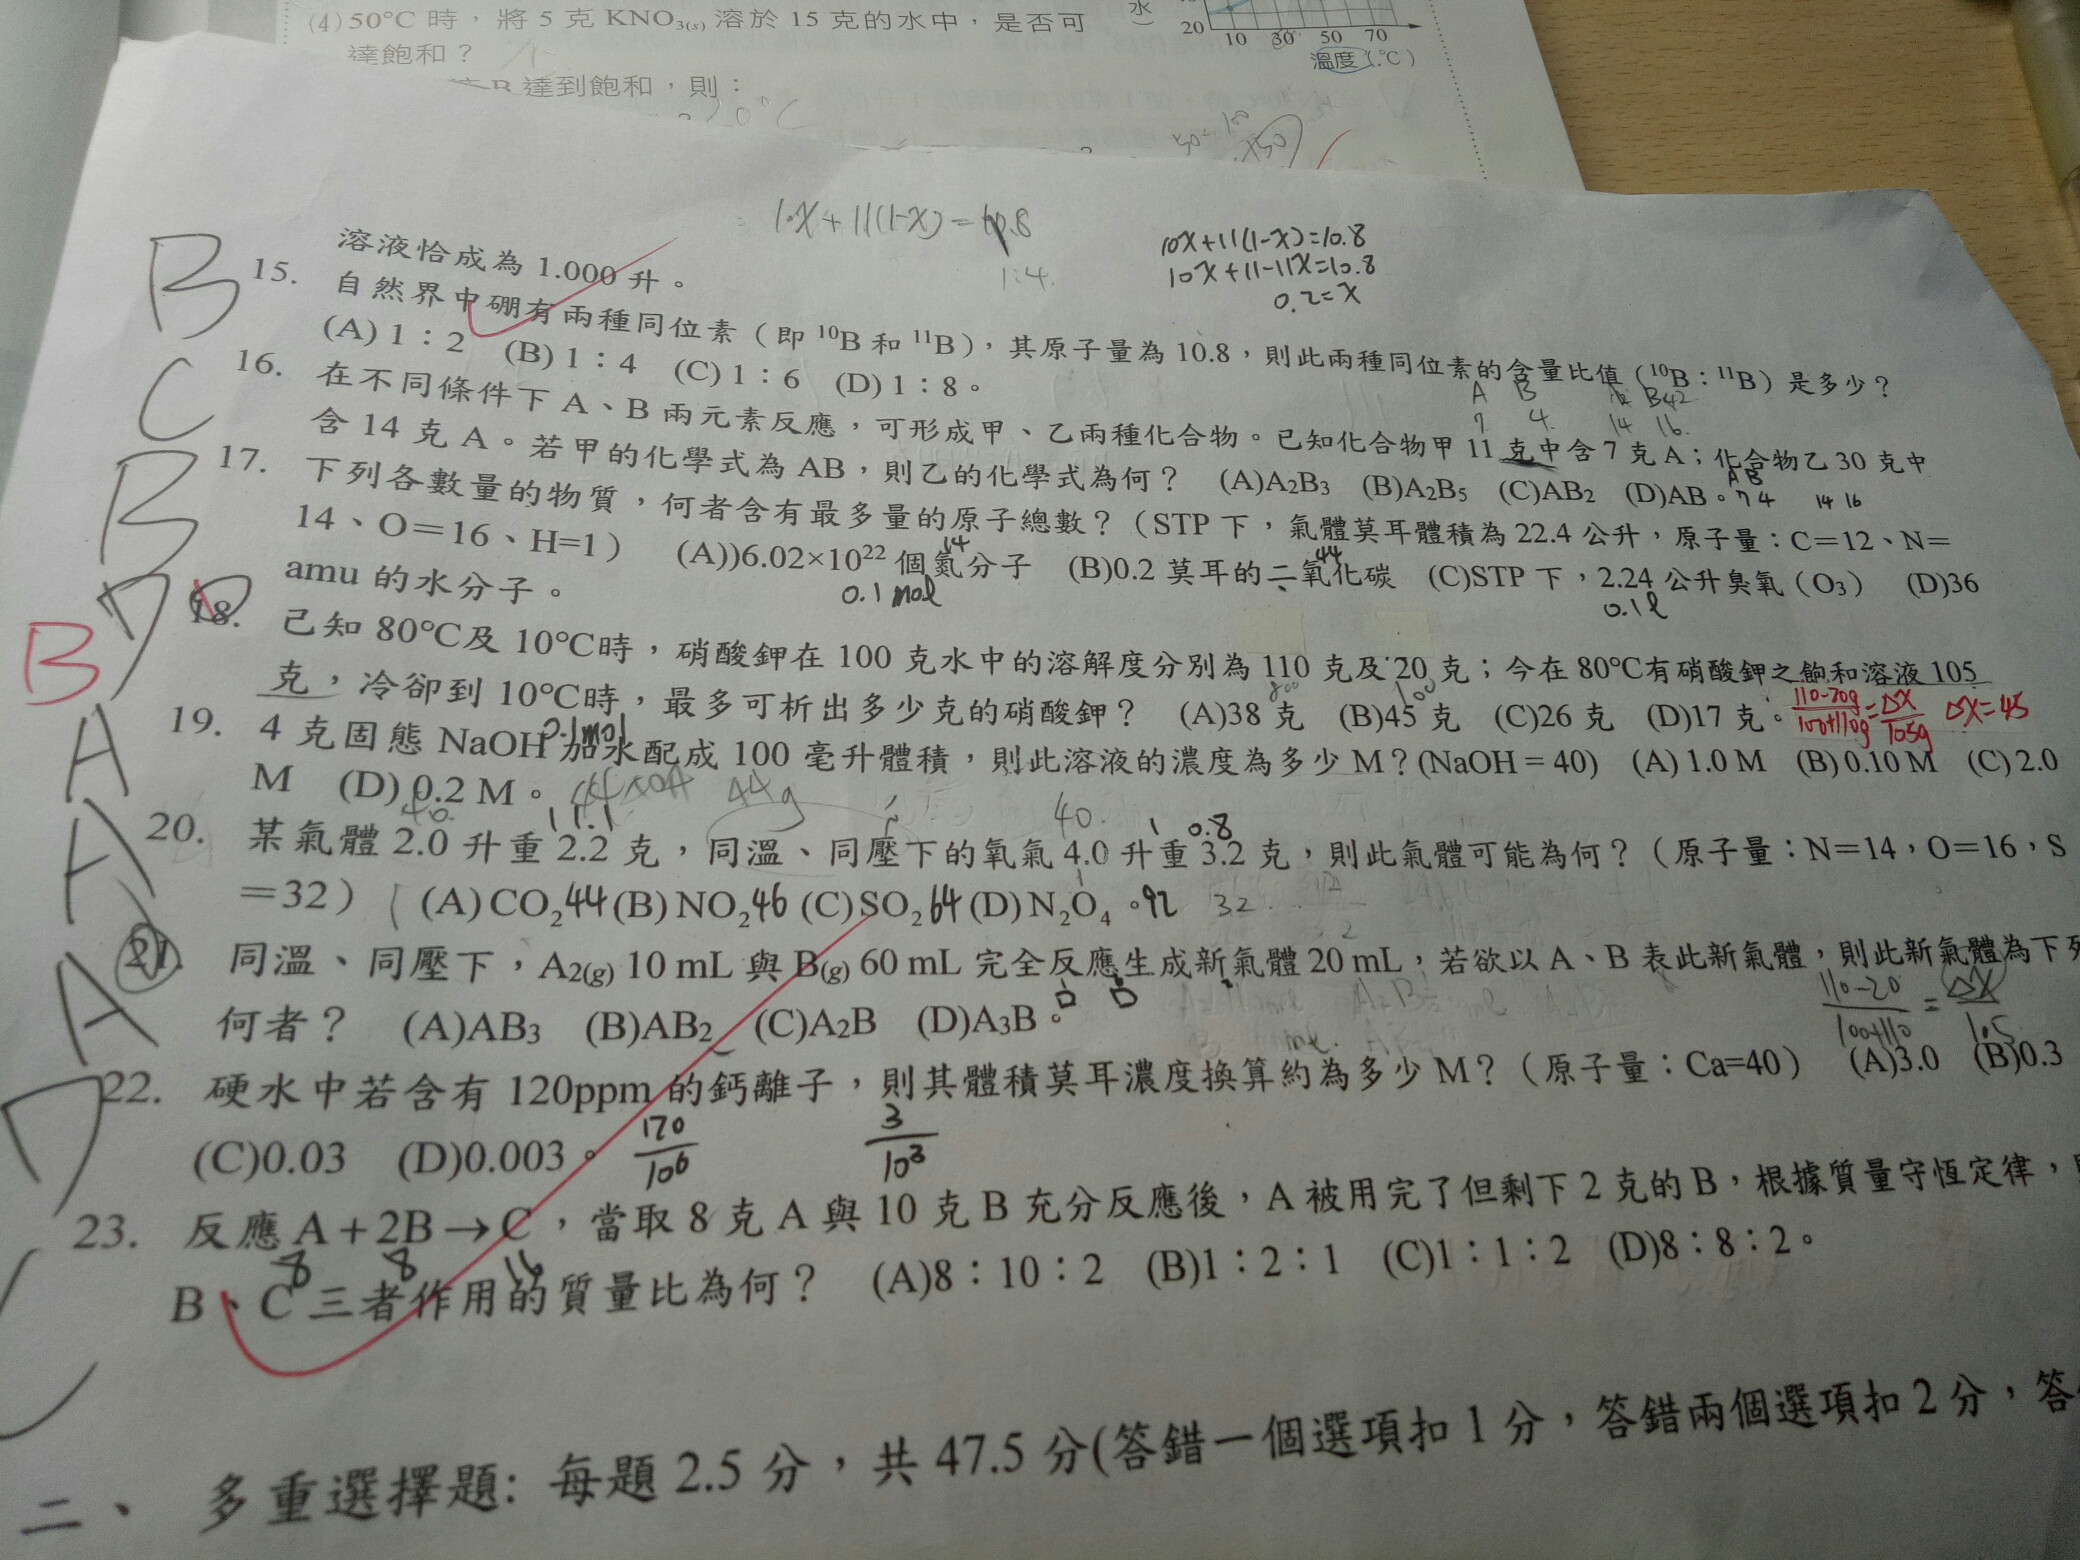 (4) 50°C 時，將 5 克 KNO3(s) 溶於 15 克的水中，是否可
達飽和？
達到飽和，則：
水）
20
10 30 50 70
溫度（°C）
10X+11(1-X)=10.8
1:4
10X+11(1-X)=10.8
10X+11-11X=10.8
0.2=X
溶液恰成為 1.000 升。
B 15. 自然界中硼有兩種同位素（即 ¹⁰B 和 ¹¹B），其原子量為 10.8，則此兩種同位素的含量比值（¹⁰B：¹¹B）是多少？
(A) 1：2 (B) 1：4 (C) 1：6 (D) 1：8。
A B
7 4 14 16
C 16. 在不同條件下 A、B 兩元素反應，可形成甲、乙兩種化合物。已知化合物甲 11 克中含 7 克 A；化合物乙 30 克中
含 14 克 A。若甲的化學式為 AB，則乙的化學式為何？ (A)A₂B₃ (B)A₂B₅ (C)AB₂ (D)AB。
A B
7 4 14 16
B 17. 下列各數量的物質，何者含有最多量的原子總數？（STP 下，氣體莫耳體積為 22.4 公升，原子量：C＝12、N＝
14、O＝16、H=1） (A))6.02×10²² 個氮分子 (B)0.2 莫耳的二氧化碳 (C)STP 下，2.24 公升臭氧（O₃） (D)36
amu 的水分子。
14
44
0.1 mol
0.1l
D B 18. 已知 80°C及 10°C時，硝酸鉀在 100 克水中的溶解度分別為 110 克及 20 克；今在 80°C有硝酸鉀之飽和溶液 105
克，冷卻到 10°C時，最多可析出多少克的硝酸鉀？ (A)38 克 (B)45 克 (C)26 克 (D)17 克。
110-20g/100+110g=ΔX/105g ΔX=45
A 19. 4 克固態 NaOH 加水配成 100 毫升體積，則此溶液的濃度為多少 M？(NaOH = 40) (A) 1.0 M (B) 0.10 M (C) 2.0
M (D) 0.2 M。
0.1mol
44g
40.
1 1.1
40.
1 0.8
A 20. 某氣體 2.0 升重 2.2 克，同溫、同壓下的氧氣 4.0 升重 3.2 克，則此氣體可能為何？（原子量：N＝14，O＝16，S
＝32） (A) CO₂ 44 (B) NO₂ 46 (C) SO₂ 64 (D) N₂O₄。92
32
A 21. 同溫、同壓下，A₂(g) 10 mL 與 B(g) 60 mL 完全反應生成新氣體 20 mL，若欲以 A、B 表此新氣體，則此新氣體為下列
何者？ (A)AB₃ (B)AB₂ (C)A₂B (D)A₃B。
110-20/100+110=ΔX/105
D 22. 硬水中若含有 120ppm 的鈣離子，則其體積莫耳濃度換算約為多少 M？（原子量：Ca=40） (A)3.0 (B)0.3
(C)0.03 (D)0.003。
120/10⁶
3/10³
C 23. 反應 A＋2B→C，當取 8 克 A 與 10 克 B 充分反應後，A 被用完了但剩下 2 克的 B，根據質量守恆定律，
8 8 16
B、C 三者作用的質量比為何？ (A)8：10：2 (B)1：2：1 (C)1：1：2 (D)8：8：2。
二、 多重選擇題: 每題 2.5 分，共 47.5 分(答錯一個選項扣 1 分，答錯兩個選項扣 2 分，答